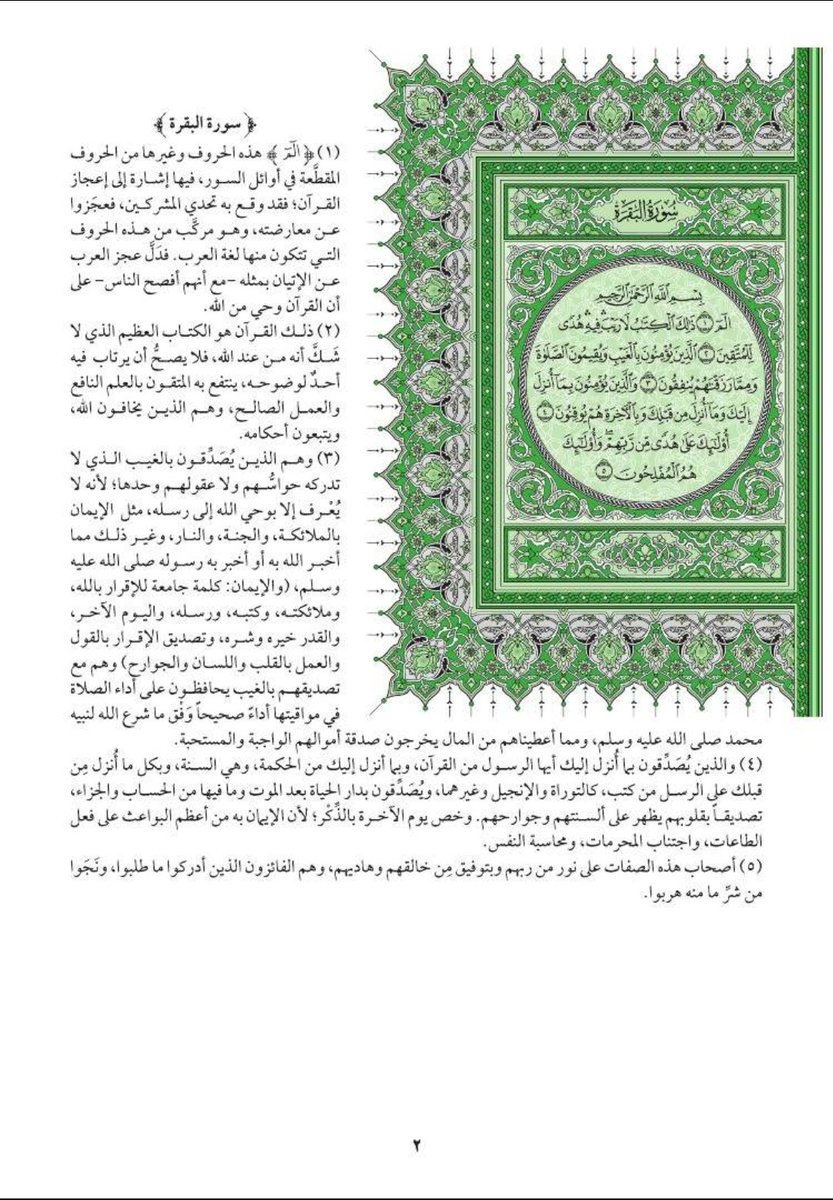 سُورَةُ البَقَرَةِ
بِسْمِ اللَّهِ الرَّحْمَٰنِ الرَّحِيمِ
الٓمٓ ١ ذَٰلِكَ الْكِتَٰبُ لَا رَيْبَ ۛ فِيهِ ۛ هُدًى
لِّلْمُتَّقِينَ ٢ الَّذِينَ يُؤْمِنُونَ بِالْغَيْبِ وَيُقِيمُونَ الصَّلَوٰةَ
وَمِمَّا رَزَقْنَٰهُمْ يُنفِقُونَ ٣ وَالَّذِينَ يُؤْمِنُونَ بِمَا أُنزِلَ
إِلَيْكَ وَمَا أُنزِلَ مِن قَبْلِكَ وَبِالْآخِرَةِ هُمْ يُوقِنُونَ ٤
أُولَٰئِكَ عَلَىٰ هُدًى مِّن رَّبِّهِمْ ۖ وَأُولَٰئِكَ
هُمُ الْمُفْلِحُونَ ٥
﴿سورة البقرة﴾
(١) ﴿الٓمٓ﴾ هذه الحروف وغيرها من الحروف
المقطَّعة في أوائل السور، فيها إشارة إلى إعجاز
القرآن؛ فقد وقع به تحدي المشركين، فعجَزوا
عن معارضته، وهو مركَّب من هذه الحروف
التي تتكون منها لغة العرب. فدَلَّ عجز العرب
عن الإتيان بمثله -مع أنهم أفصح الناس- على
أن القرآن وحي من الله.
(٢) ذلك القرآن هو الكتاب العظيم الذي لا
شَكَّ أنه من عند الله، فلا يصحُّ أن يرتاب فيه
أحدٌ لوضوحه، ينتفع به المتقون بالعلم النافع
والعمل الصالح، وهم الذين يخافون الله،
ويتبعون أحكامه.
(٣) وهم الذين يُصَدِّقون بالغيب الذي لا
تدركه حواسُّهم ولا عقولهم وحدها؛ لأنه لا
يُعْرف إلا بوحي الله إلى رسله، مثل الإيمان
بالملائكة، والجنة، والنار، وغير ذلك مما
أخبر الله به أو أخبر به رسوله صلى الله عليه
وسلم، (والإيمان: كلمة جامعة للإقرار بالله،
وملائكته، وكتبه، ورسله، واليوم الآخر،
والقدر خيره وشره، وتصديق الإقرار بالقول
والعمل بالقلب واللسان والجوارح) وهم مع
تصديقهم بالغيب يحافظون على أداء الصلاة
في مواقيتها أداءً صحيحاً وَفْق ما شرع الله لنبيه
محمد صلى الله عليه وسلم، ومما أعطيناهم من المال يخرجون صدقة أموالهم الواجبة والمستحبة.
(٤) والذين يُصَدِّقون بما أُنزل إليك أيها الرسول من القرآن، وبما أنزل إليك من الحكمة، وهي السنة، وبكل ما أُنزل مِن
قبلك على الرسل من كتب، كالتوراة والإنجيل وغيرهما، ويُصَدِّقون بدار الحياة بعد الموت وما فيها من الحساب والجزاء،
تصديقاً بقلوبهم يظهر على ألسنتهم وجوارحهم. وخص يوم الآخرة بالذِّكْر؛ لأن الإيمان به من أعظم البواعث على فعل
الطاعات، واجتناب المحرمات، ومحاسبة النفس.
(٥) أصحاب هذه الصفات على نور من ربهم وبتوفيق مِن خالقهم وهاديهم، وهم الفائزون الذين أدركوا ما طلبوا، ونَجَوا
من شرِّ ما منه هربوا.
٢